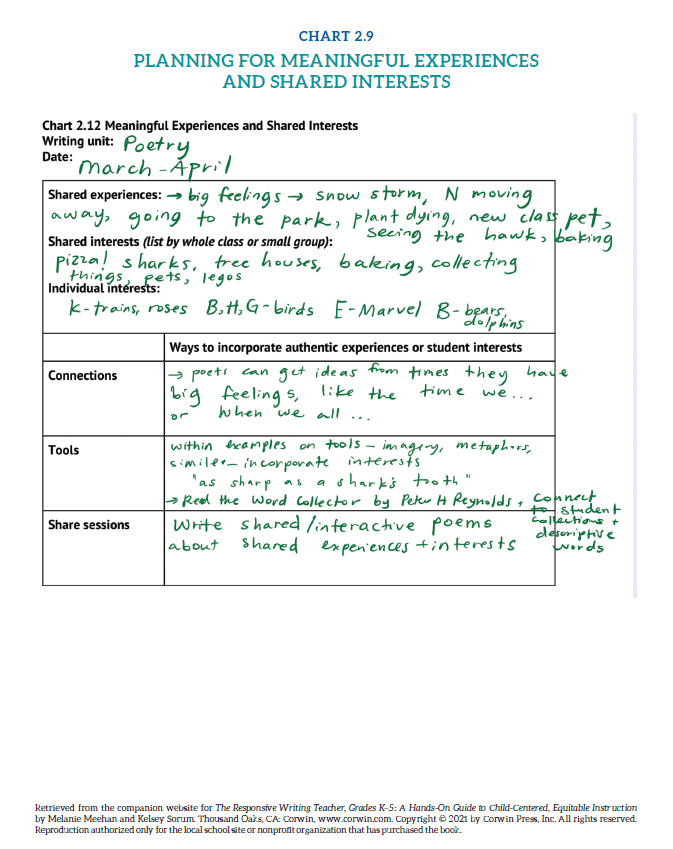 CHART 2.9
PLANNING FOR MEANINGFUL EXPERIENCES
AND SHARED INTERESTS
Chart 2.12 Meaningful Experiences and Shared Interests
Writing unit: Poetry
Date: March - April
Shared experiences: → big feelings → snow storm, N moving
away, going to the park, plant dying, new class pet,
seeing the hawk, baking
Shared interests (list by whole class or small group):
pizza! sharks, tree houses, baking, collecting
things, pets, legos
Individual interests:
K - trains, roses B, H, G - birds E - Marvel B - bears,
dolphins
Ways to incorporate authentic experiences or student interests
Connections
→ poets can get ideas from times they have
big feelings, like the time we...
or when we all ...
Tools
within examples on tools - imagery, metaphors,
similes - incorporate interests
"as sharp as a shark's tooth"
→ Read the Word Collector by Peter H Reynolds + connect
to student
collections +
descriptive
words
Share sessions
Write shared/interactive poems
about shared experiences + interests
Retrieved from the companion website for The Responsive Writing Teacher, Grades K-5: A Hands-On Guide to Child-Centered, Equitable Instruction
by Melanie Meehan and Kelsey Sorum. Thousand Oaks, CA: Corwin, www.corwin.com. Copyright © 2021 by Corwin Press, Inc. All rights reserved.
Reproduction authorized only for the local school site or nonprofit organization that has purchased the book.